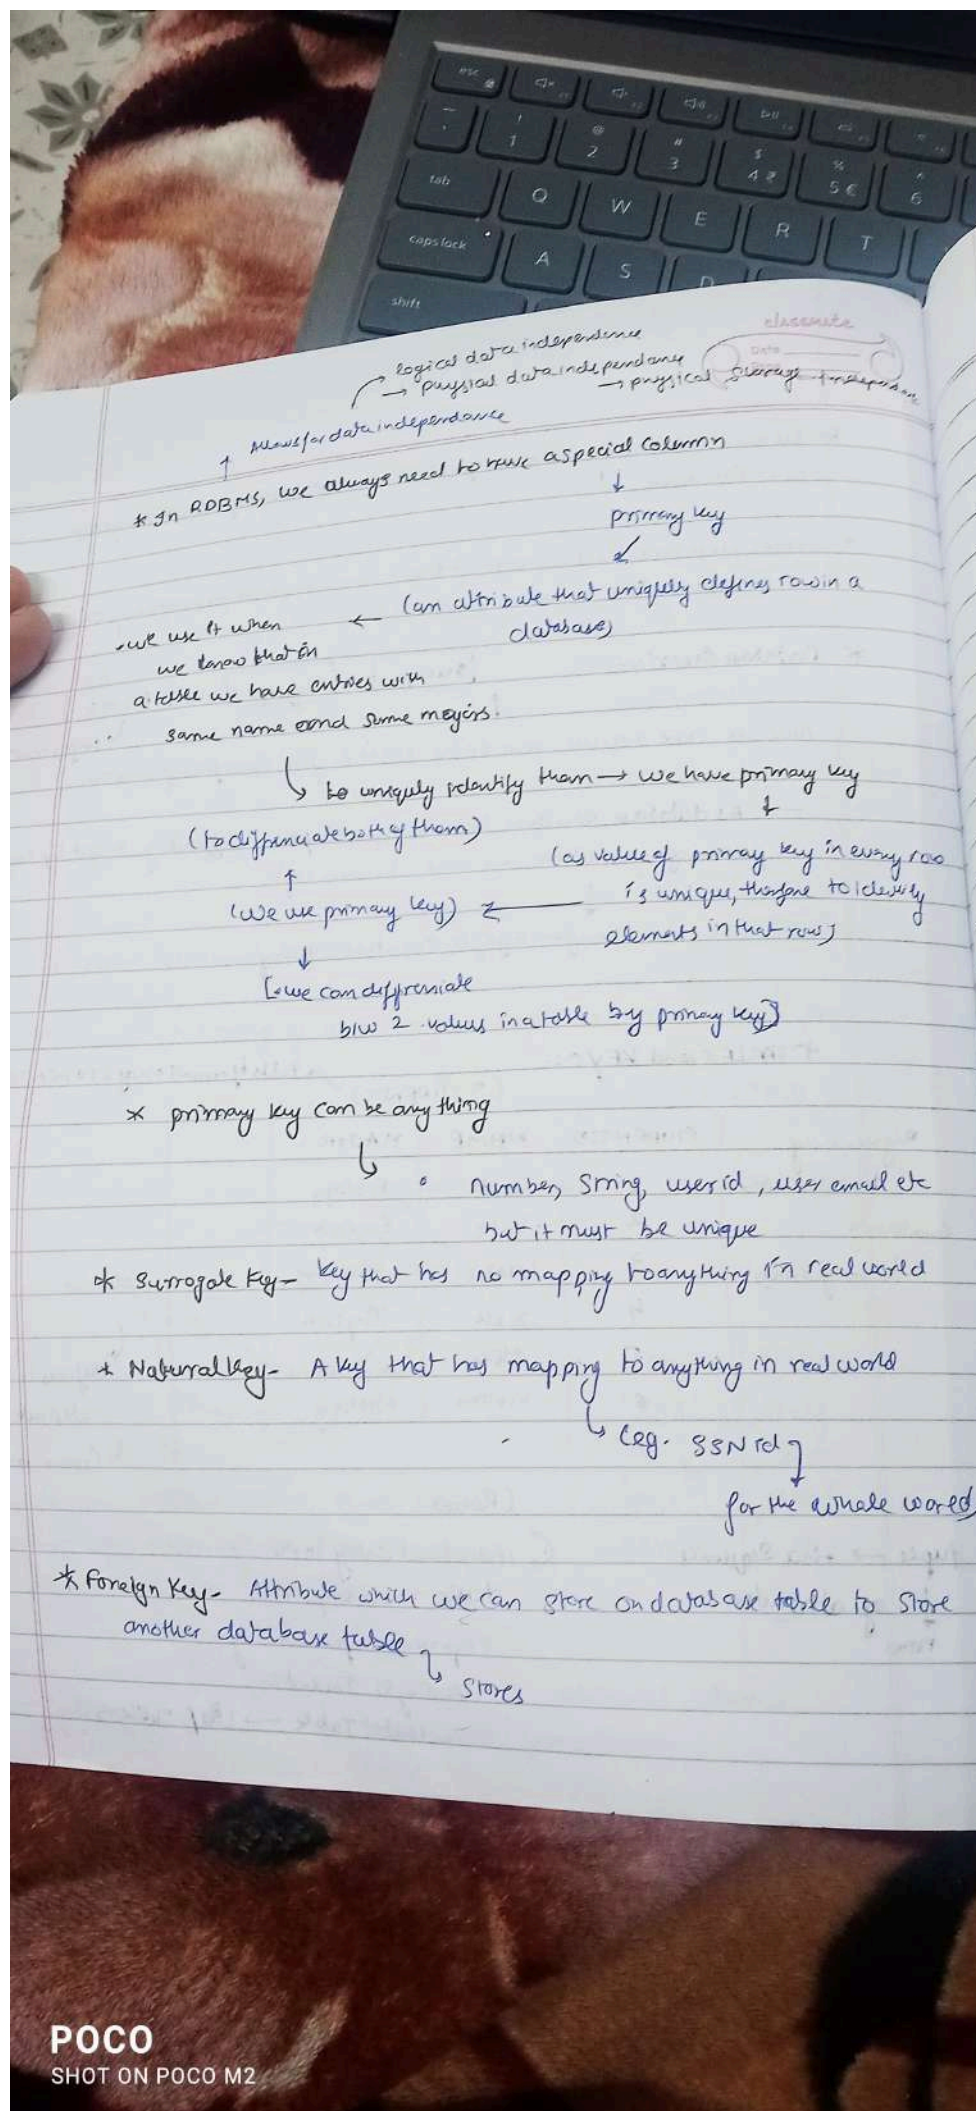 esc
! 1
@ 2
# 3
$ 4 ₹
% 5 €
^ 6
tab Q W E R T
caps lock A S D
shift
classmate
Date
logical data independence
→ physical data independance
→ physical storage independance
Allows for data independance
* In RDBMS, we always need to have a special column
primary key
(an attribute that uniquely defines row in a
database)
. we use it when
we know that in
a table we have entries with
same name and same majors.
to uniquely identify them → we have primary key
(to differnciate both of them)
(as value of primary key in every row
is unique, therfore to identify
elements in that row)
(We use primary key)
[. we can differenciate
b/w 2 values in a table by primary key]
* primary key can be anything
number, string, user id, user email etc
but it must be unique
* Surrogate Key - key that has no mapping to anything in real world
* Natural key - A key that has mapping to anything in real world
(eg. SSN id
for the whole world)
* Foreign Key - Attribute which we can store on database table to store
another database table
stores
POCO
SHOT ON POCO M2